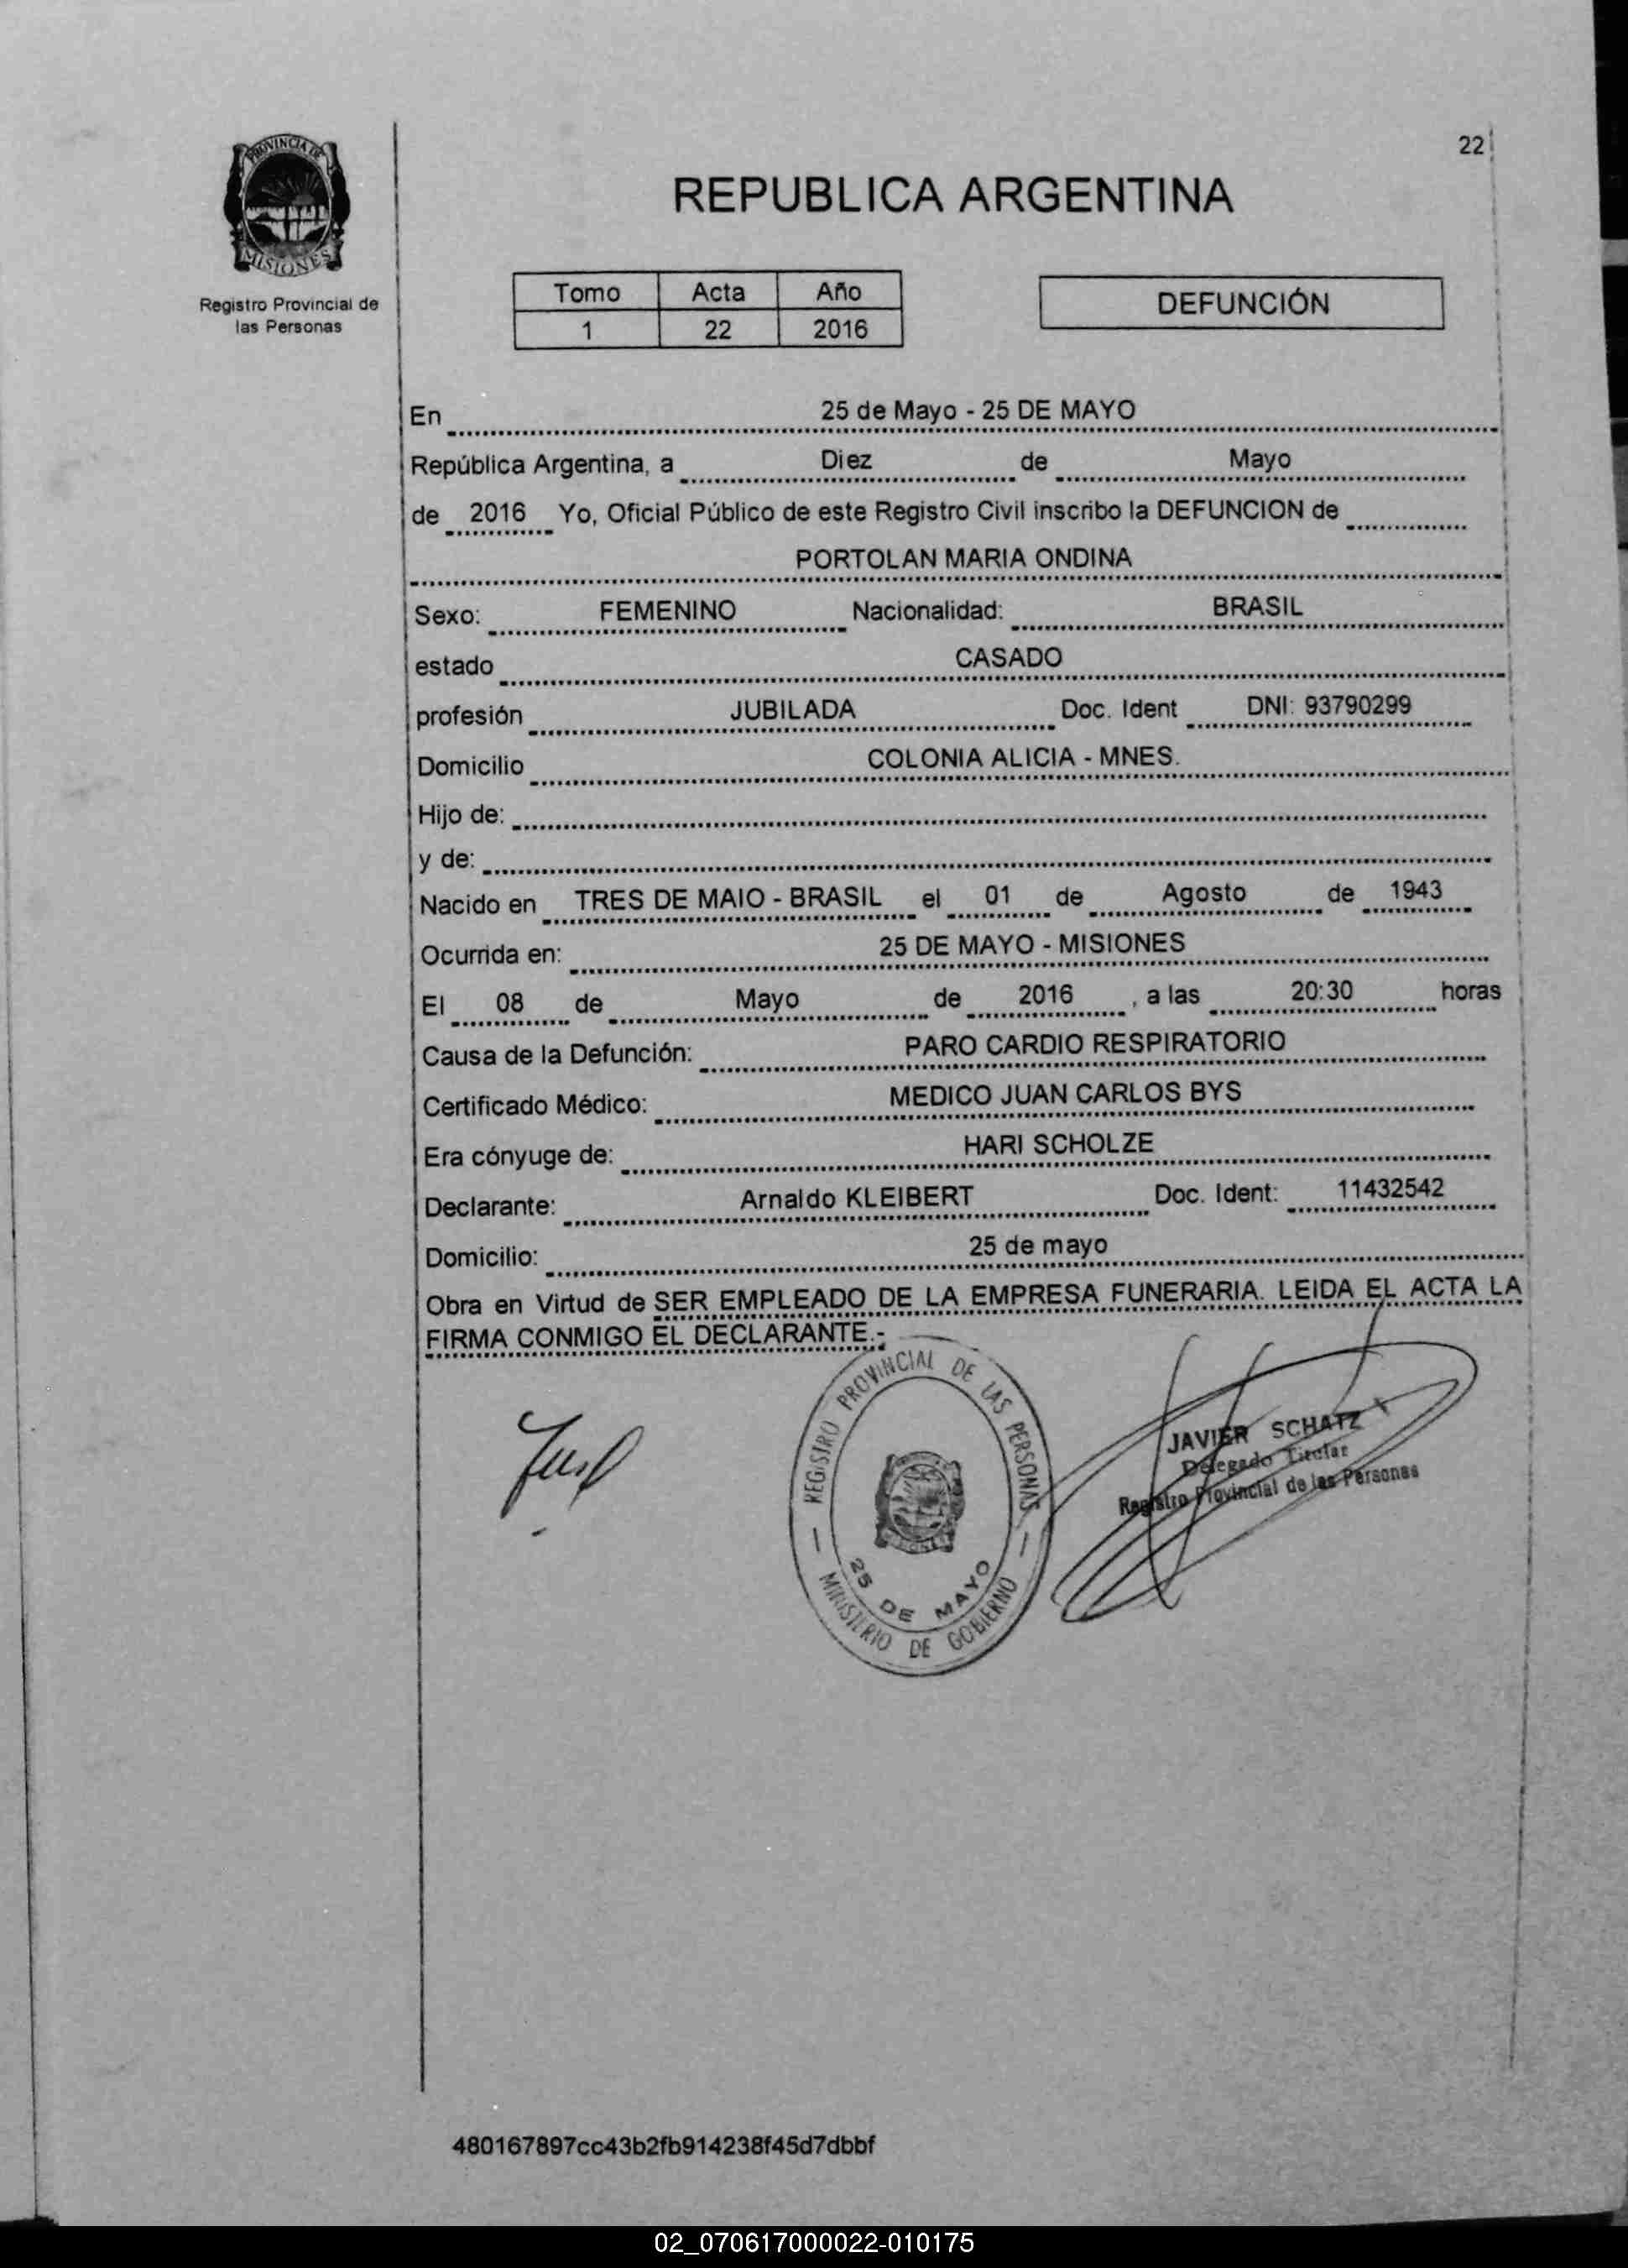 22
PROVINCIA DE
MISIONES
Registro Provincial de
las Personas
REPUBLICA ARGENTINA
Tomo Acta Año
1 22 2016
DEFUNCIÓN
En 25 de Mayo - 25 DE MAYO
República Argentina, a Diez de Mayo
de 2016 Yo, Oficial Público de este Registro Civil inscribo la DEFUNCION de
PORTOLAN MARIA ONDINA
Sexo: FEMENINO Nacionalidad: BRASIL
estado CASADO
profesión JUBILADA Doc. Ident DNI: 93790299
Domicilio COLONIA ALICIA - MNES.
Hijo de:
y de:
Nacido en TRES DE MAIO - BRASIL el 01 de Agosto de 1943
Ocurrida en: 25 DE MAYO - MISIONES
El 08 de Mayo de 2016 , a las 20:30 horas
Causa de la Defunción: PARO CARDIO RESPIRATORIO
Certificado Médico: MEDICO JUAN CARLOS BYS
Era cónyuge de: HARI SCHOLZE
Declarante: Arnaldo KLEIBERT Doc. Ident: 11432542
Domicilio: 25 de mayo
Obra en Virtud de SER EMPLEADO DE LA EMPRESA FUNERARIA. LEIDA EL ACTA LA
FIRMA CONMIGO EL DECLARANTE.-
REGISTRO PROVINCIAL DE LAS PERSONAS
25 DE MAYO
MINISTERIO DE GOBIERNO
JAVIER SCHATZ
Delegado Titular
Registro Provincial de las Personas
480167897cc43b2fb914238f45d7dbbf
02_070617000022-010175